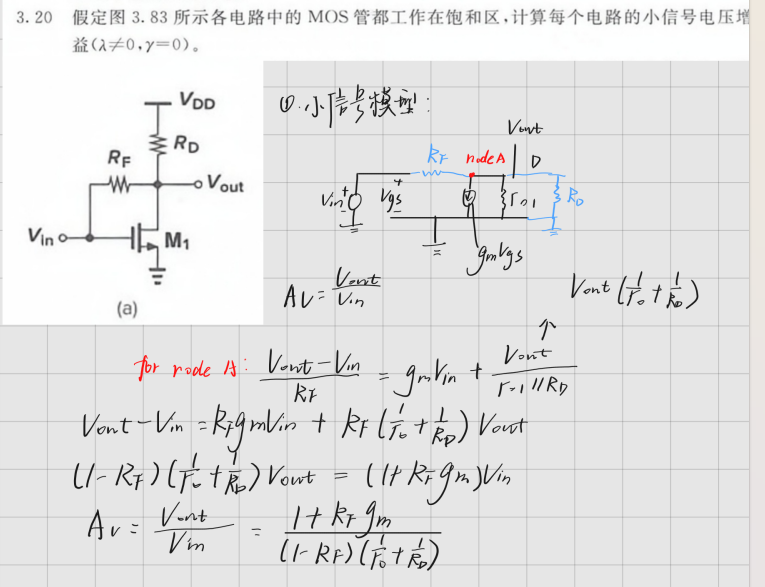 3.20 假定图 3.83 所示各电路中的 MOS 管都工作在饱和区,计算每个电路的小信号电压增
益(λ≠0,γ=0)。
VDD
RD
RF
Vout
Vin
M1
(a)
①.小信号模型:
Vout
RF node A D
Vin + - Vgs + - ro1 RD
gmVgs
Av = Vout/Vin
Vout (1/ro + 1/RD)
↑
for node A: (Vout - Vin)/RF = gmVin + Vout/(ro1 // RD)
Vout - Vin = RFgmVin + RF (1/ro + 1/RD) Vout
(1 - RF) (1/ro + 1/RD) Vout = (1 + RFgm)Vin
Av = Vout/Vin = (1 + RFgm)/((1 - RF) (1/ro + 1/RD))